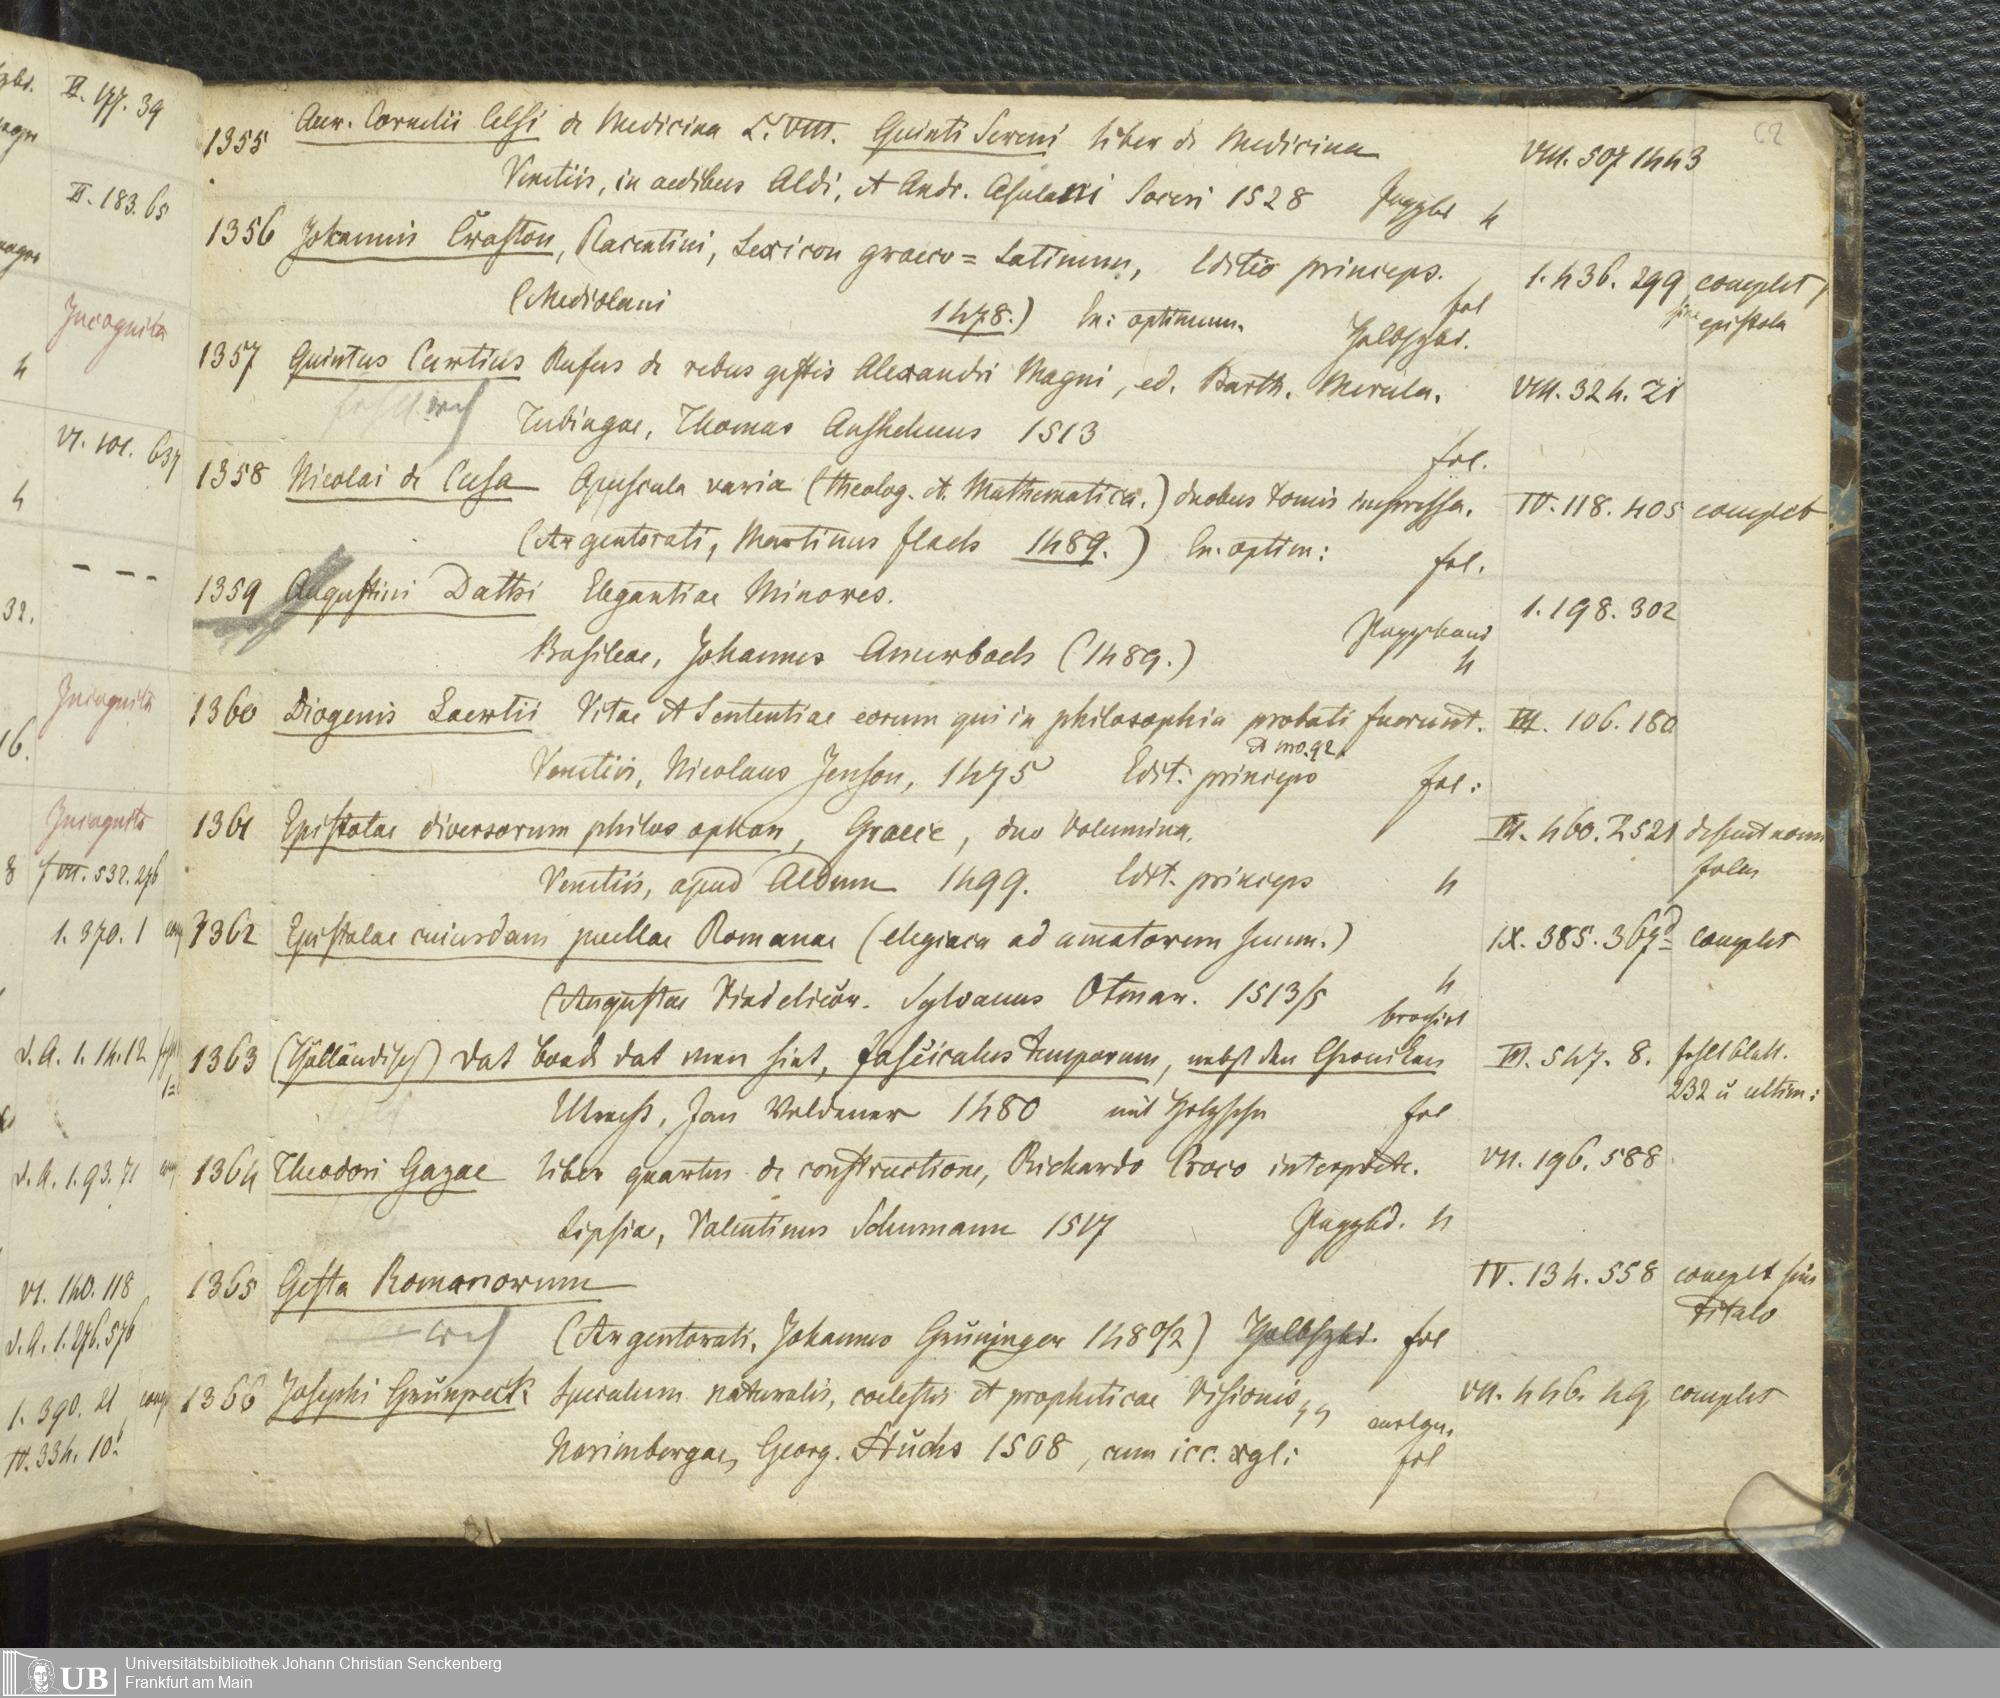 VI. 177. 39
VI. 183. 65
Incognita
4
VI. 101. 637
4
32.
Incognita
16.
Incognita
8 VII. 532. 296
1. 370. 1
d. A. 1. 14. 12
d. A. 1. 93. 71
VI. 140. 118
d. A. 1. 276. 576
1. 390. 21 comp
IV. 334. 10
1355 Aur. Cornelii Celsi de Medicina L. VIII. Quinti Sereni liber de Medicina VIII. 507 1443
Venetiis, in aedibus Aldi, et Andr. Asulani Soceri 1528 Pappbd 4
1356 Johannis Craston, Placentini, Lexicon graeco=Latinum, Editio princeps. 1. 436. 299 complet,
(Mediolani 1478.) Ex: optimum. fol Halbfzbd. sine epistola
1357 Quintus Curtius Rufus de rebus gestis Alexandri Magni, ed. Barth. Merula. VIII. 324. 21
Tubingae, Thomas Anshelmus 1513 fol.
1358 Nicolai de Cusa Opuscula varia (theolog. et. Mathematica.) duobus tomis impressa. IV. 118. 405 complet
(Argentorati, Martinus Flach 1489.) Ex. optim: fol.
1359 Augustini Dathi Elegantiae Minores. 1. 198. 302
Basileae, Johannes Amerbach (1489.) Pappband 4
1360 Diogenis Laertii Vitae et Sententiae eorum qui in philosophia probati fuerunt. III. 106. 180
Venetiis, Nicolaus Jenson, 1475 Edit. princeps fol:
1361 Epistolae diversorum philosophon, Graece, duo Volumina. III. 460. 2521 desunt nonn
Venetiis, apud Aldum 1499. Edit. princeps 4 folia
1362 Epistolae cuiusdam puellae Romanae (elegiaca ad amatorem suum.) IX. 385. 369 complet
(Augustae Vindelicor. Sylvanus Otmar. 1513/5 4 brochirt
1363 (Holländisch) Dat boeck dat men hiet, fasciculus temporum, nebst den Chroniken III. 547. 8. fehlt blatt.
Utrecht, Jan Veldener 1480 mit Holzschn fol 232 u ultim:
1364 Theodori Gazae liber quartus de constructione, Richardo Croco interprete. VII. 196. 588
Lipsia, Valentinus Schumann 1517 Pappbd. 4
1365 Gesta Romanorum IV. 134. 558 complet sine
(Argentorati, Johannes Grüninger 148 0/2) Halbfzbd. fol titulo
1366 Josephi Grünpeck Speculum naturalis, coelestis et propheticae Visionis VII. 446. 49 complet
Norimbergae, Georg. Stüchs 1508, cum icc. xgl: fol
UB
Universitätsbibliothek Johann Christian Senckenberg
Frankfurt am Main